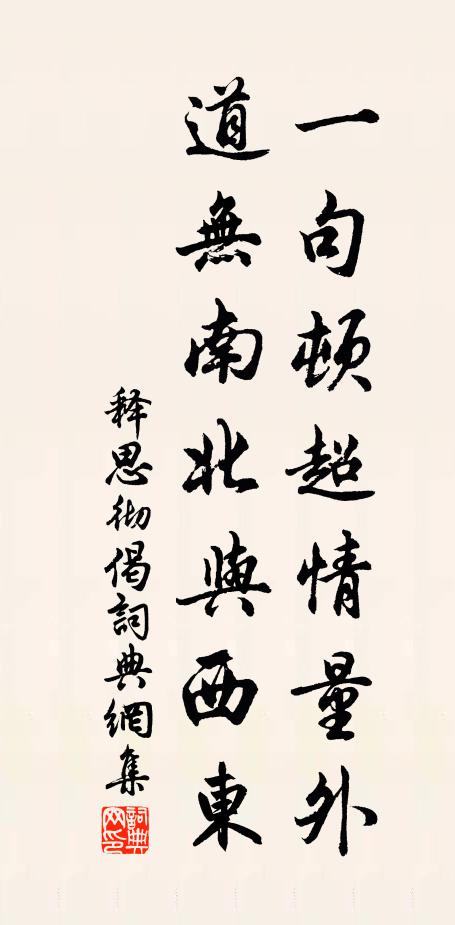 一句頓超情量外
道無南北與西東
释思彻偈詞典網集
詞典
网印